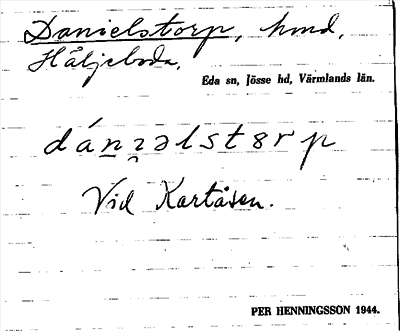 Danielstorp, hmd,
Häljeboda.
Eda sn, Jösse hd, Värmlands län.
Vid Kartåsen.
PER HENNINGSSON 1944.